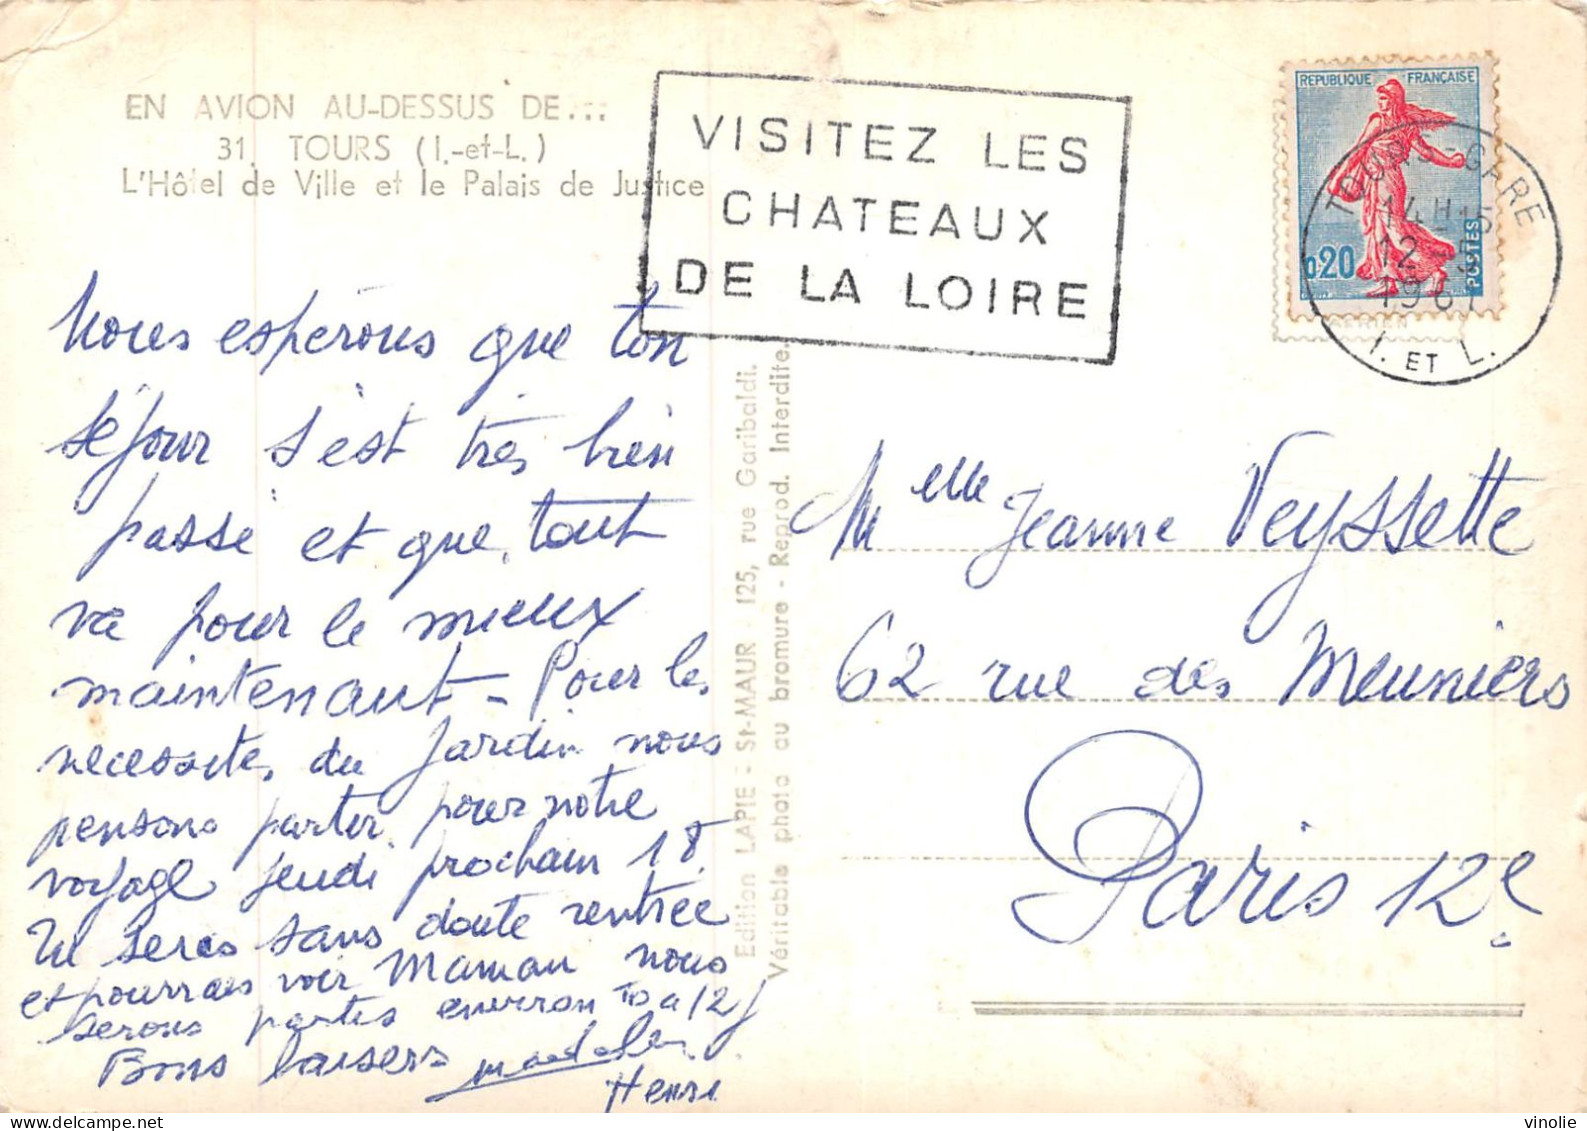 EN AVION AU-DESSUS DE...
31. TOURS (I.-et-L.)
L'Hôtel de Ville et le Palais de Justice
VISITEZ LES
CHATEAUX
DE LA LOIRE
REPUBLIQUE FRANÇAISE
0,20
POSTES
TOURS-GARE
14H15
12-5
1961
I. ET L.
AERIEN
Nous espérons que ton
séjour s'est très bien
passé et que tout
va pour le mieux
maintenant - Pour les
necessités du jardin nous
pensons partir pour notre
voyage jeudi prochain 18.
Tu seras sans doute rentrée
et pourras voir Maman nous
serons partis environ 10 a 12 j
Bons baisers Madeleine
Henri
Edition LAPIE - St-MAUR - 125, rue Garibaldi.
Véritable photo au bromure - Reprod. Interdite.
Melle Jeanne Veyssette
62 rue des Meuniers
Paris 12e
delcampe.net
vinolie